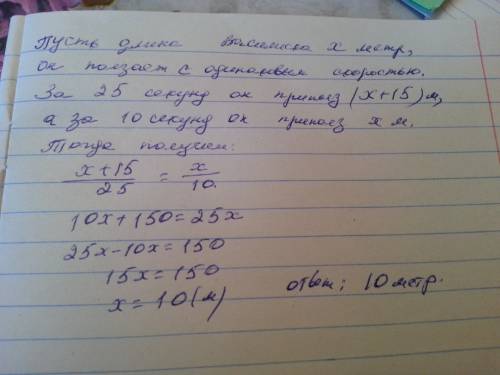 Пусть длина василиска x метр,
он ползает с одинаковым скоростью.
За 25 секунд он приполз (x+15) м,
а за 10 секунд он приполз x м.
Тогда получим:
x+15/25 = x/10.
10x+150=25x
25x-10x=150
15x=150
x=10(м)
ответ: 10 метр.